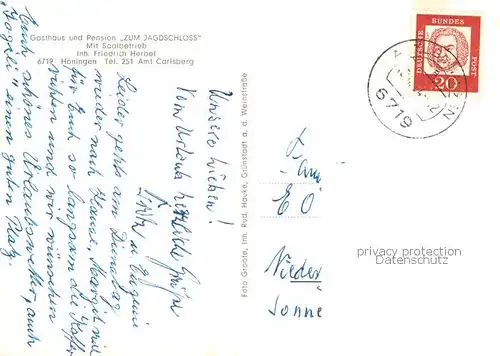 Gasthaus und Pension „ZUM JAGDSCHLOSS"
Mit Saalbetrieb
Inh. Friedrich Herbel
6719 Höningen Tel. 251 Amt Carlsberg
Unsere Lieben!
Vom Urlaub herzliche Grüße
u. Eugenie
Leider gehts am Dienstag
wieder nach Hause. Margit will
für Euch so langsam die Koffer
richten und wir wünschen
Euch schönes Urlaubswetter, auch
einen guten Platz.
Foto Groote, Inh. Rud. Hauke, Grünstadt a. d. Weinstraße
DEUTSCHE
BUNDES
POST
20
6719
Fam
Nieder
Sonne
privacy protection
Datenschutz